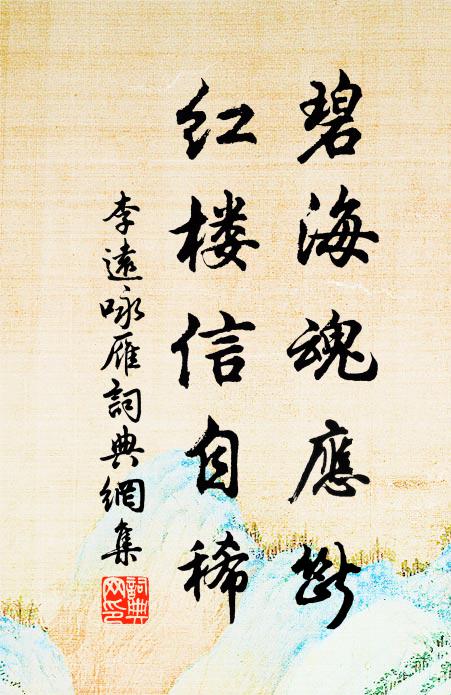 碧海魂應斷
红楼信自稀
李遠咏雁詞典網集
詞典网印